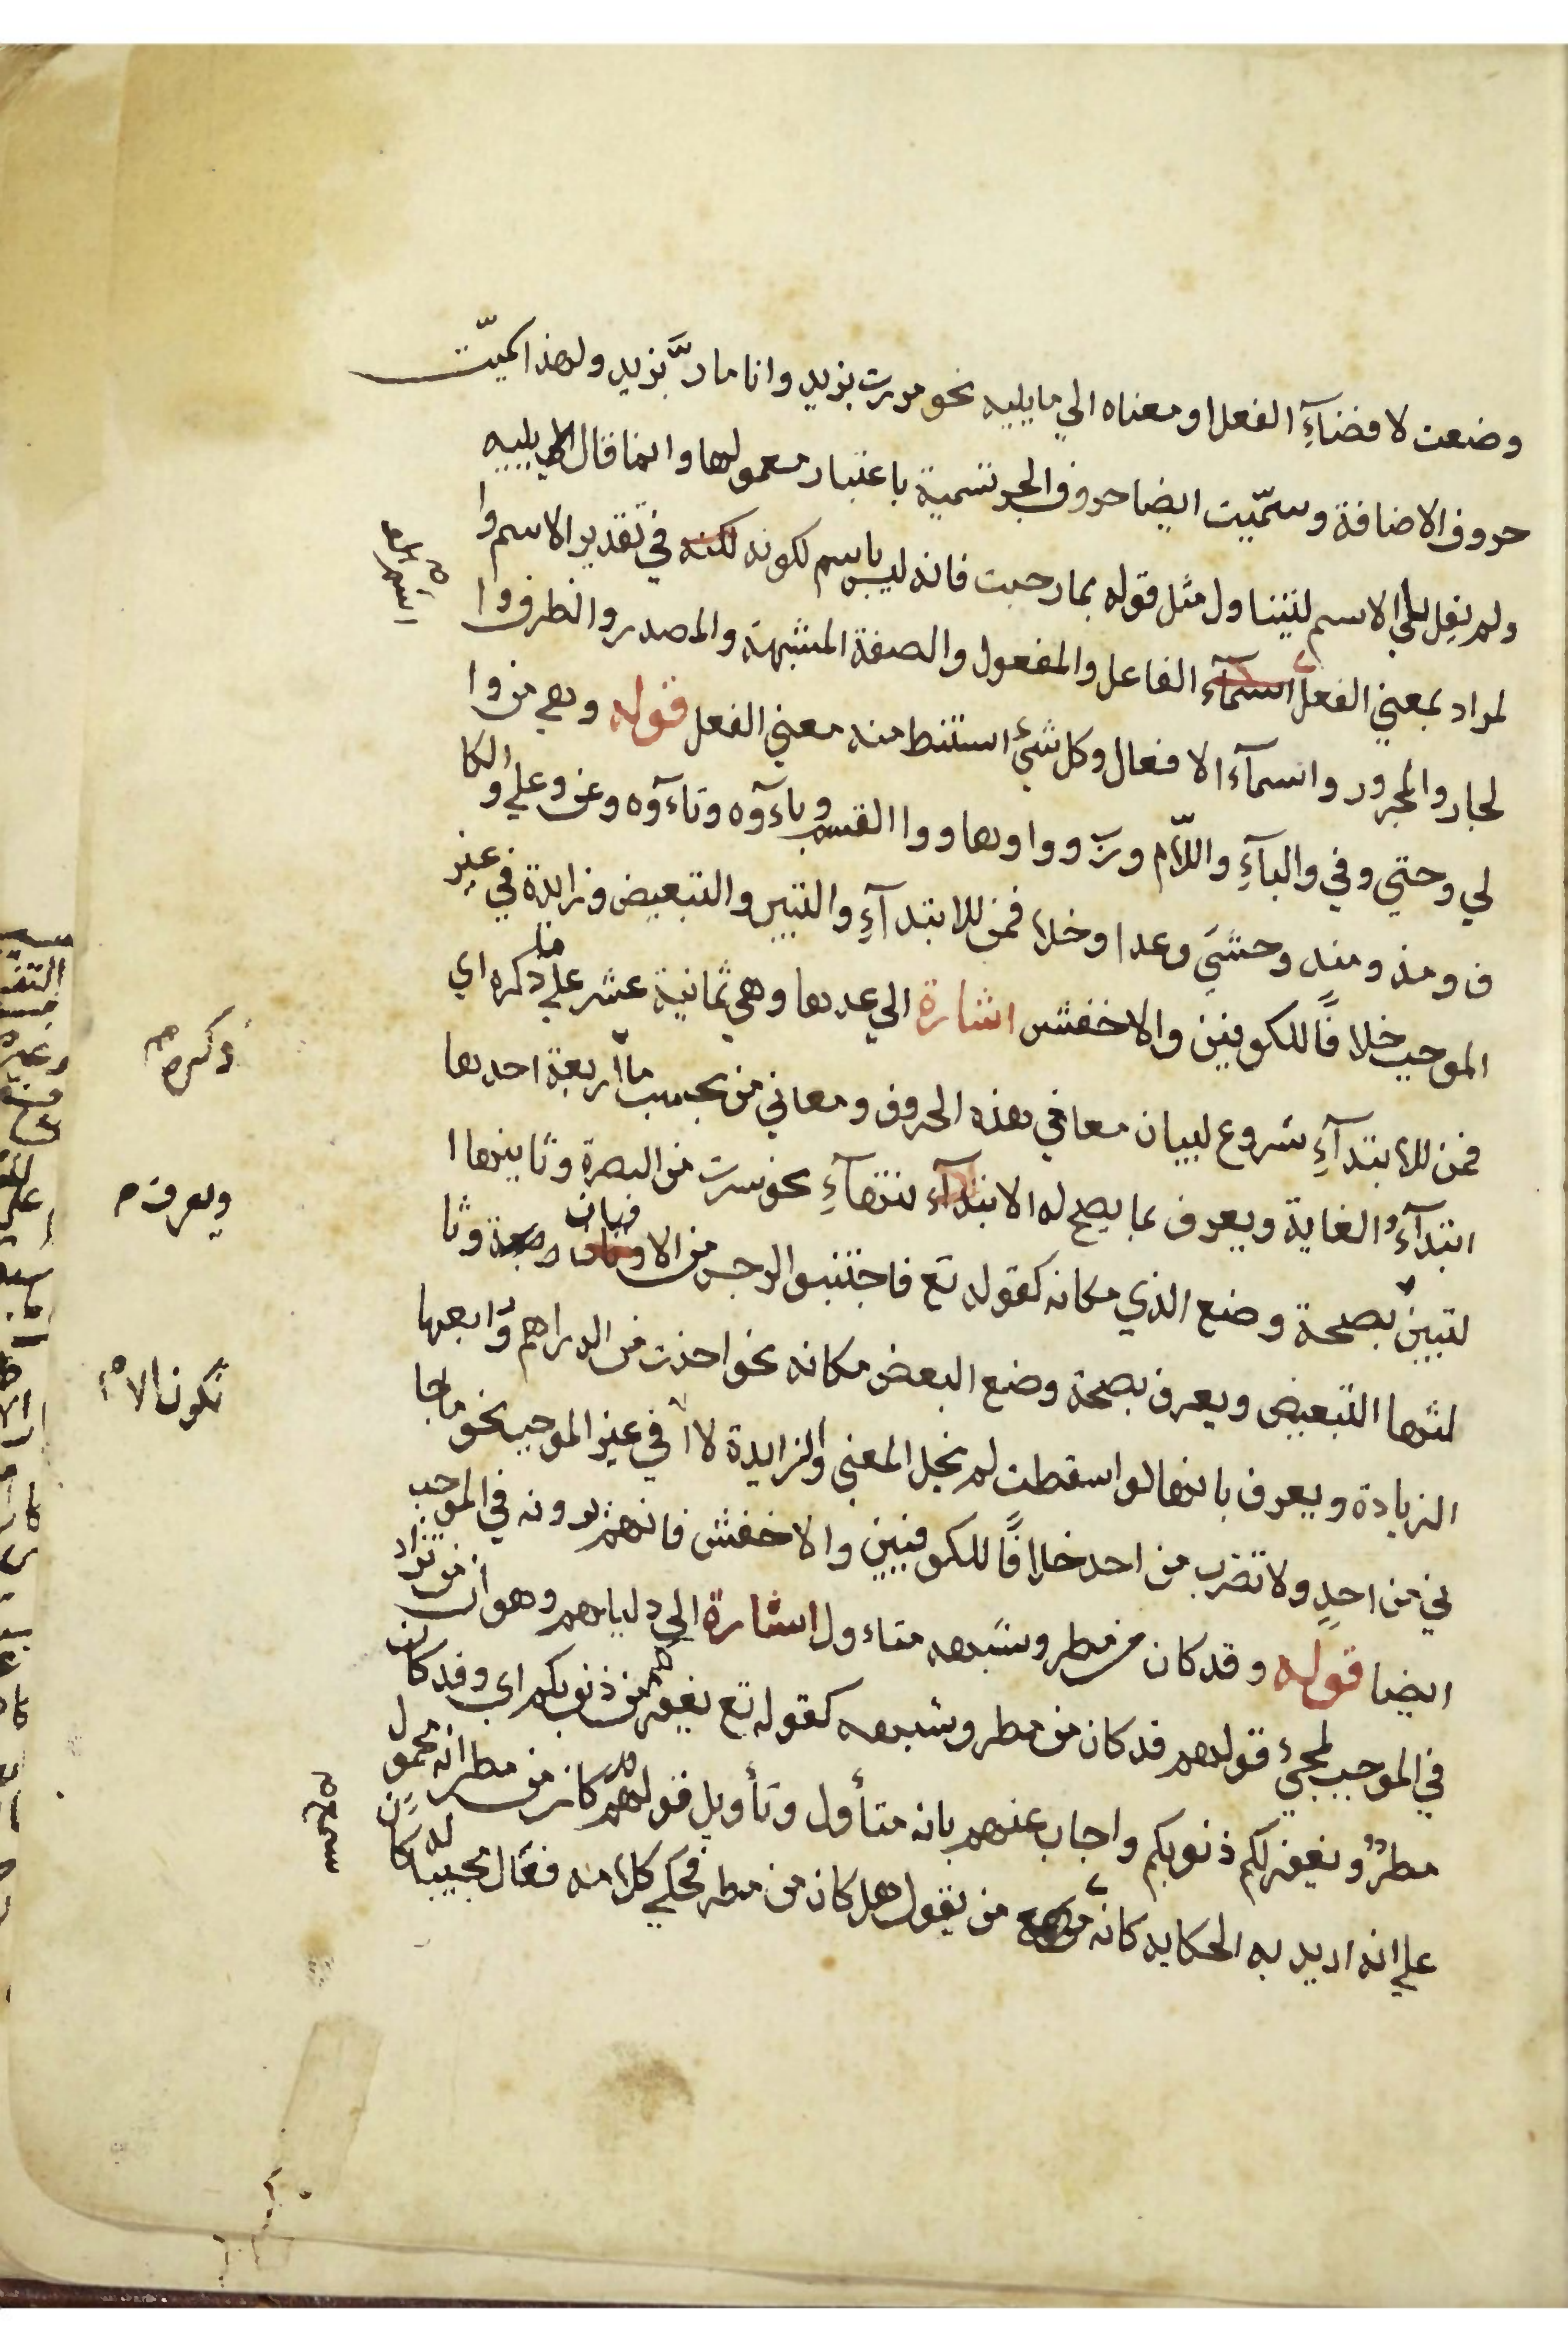 وضعت لافضآءِ الفعل او معناه الي ما يليه نحو مررت بزيد وانا مارٌّ بزيد ولهذا سميّت
حروف الاضافة وسمّيت ايضا حروف الجر تسمية باعتبار معمولها وانما قال الي ما يليه
ولم يقل الي الاسم لتيناول مثل قوله بما رحبت فانه ليس باسم لكونه لكنه في تقدير الاسم وا
لمراد بمعني الفعل اسمآء الفاعل والمفعول والصفة المشبهة والمصدر والظرف وا
لجار والمجرور واسمآء الافعال وكل شيء استنبط منه معني الفعل قوله وهي من وا
لي وحتي وفي والبآءِ واللّام وربّ وواوها وواو القسم وباءوه وتاءوه وعن وعلي والكا
ف ومذ ومنذ وحشي وعدا وخلا فمن للابتدآءِ والتبيين والتبعيض وزايدة في غير
الموجب خلافًا للكوفيين والاخفش اشارة الي عدها وهي ثمانية عشر علي ما ذكره اي
فمن للابتدآءِ شروع لبيان معاني هذه الحروف ومعاني من بحسب ما اربعة احدها
ابتدآءُ الغاية ويعرف بما يصح له الابتدآء انتهآءِ نحو سرت من البصرة وثانيها ا
لتبيين بصحة وضع الذي مكانه كقوله تع فاجتنبوا الرجس من الاوثان وثا
لثها التبعيض ويعرف بصحة وضع البعض مكانه نحو اخذت من الدراهم ورابعها
الزيادة ويعرف بانها لو اسقطت لم يخل المعني والزايدة لا في غير الموجب نحو ما جا
ني من احدٍ ولا تضرب من احد خلافًا للكوفيين والاخفش فانهم يزيدونه في الموجب
ايضا قوله وقد كان من مطر وشبهه متاءول اشارة الي دليلهم وهو ان من تزاد
في الموجب لمجيء قولهم قد كان من مطر وشبهه كقوله تع يغفر لكم من ذنوبكم اي وقد كان
مطرٌ ويغفر لكم ذنوبكم واجاب عنهم بانه متأول وتأويل قولهم قد كان من مطر انه محمول
علي انه اريد به الحكايه كانه من يقول هل كان من مطر فحكي كلامه فقال مجيبا له كان
ذكره
ويعرف
تكون الا